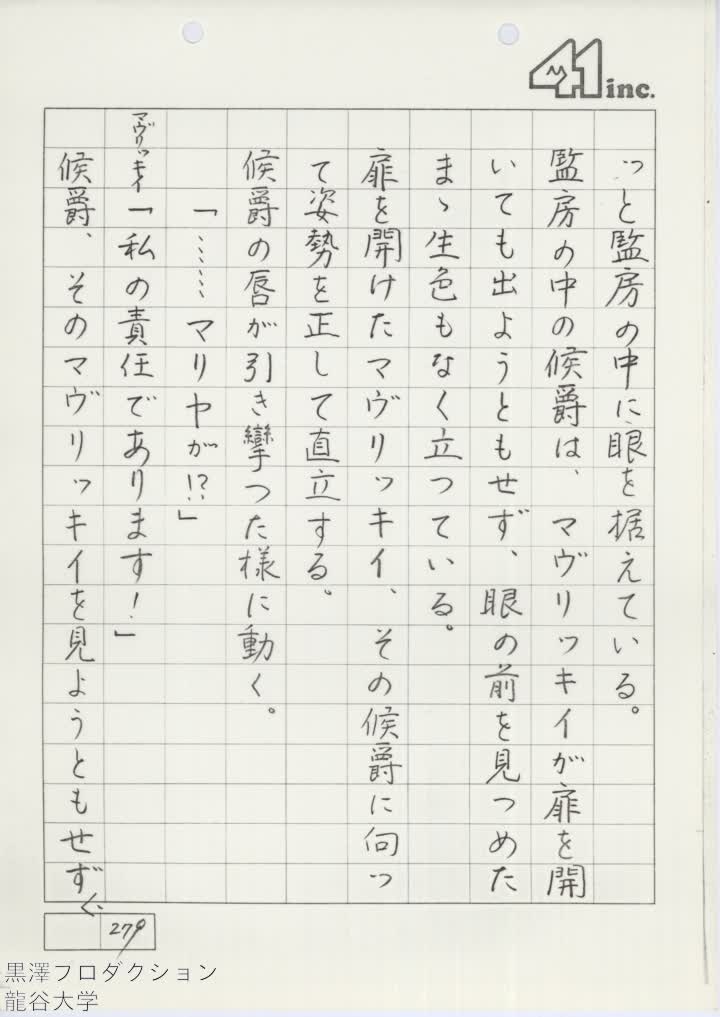 41 inc.
っと監房の中に眼を据えている。
監房の中の候爵は、マヴリッキイが扉を開
いても出ようともせず、眼の前を見つめた
まゝ生色もなく立つている。
扉を開けたマヴリッキイ、その候爵に向っ
て姿勢を正して直立する。
候爵の唇が引き攣つた様に動く。
「……マリヤが!?」
マヴリッキイ「私の責任であります!」
候爵、そのマヴリッキイを見ようともせず
279
黒澤プロダクション
龍谷大学